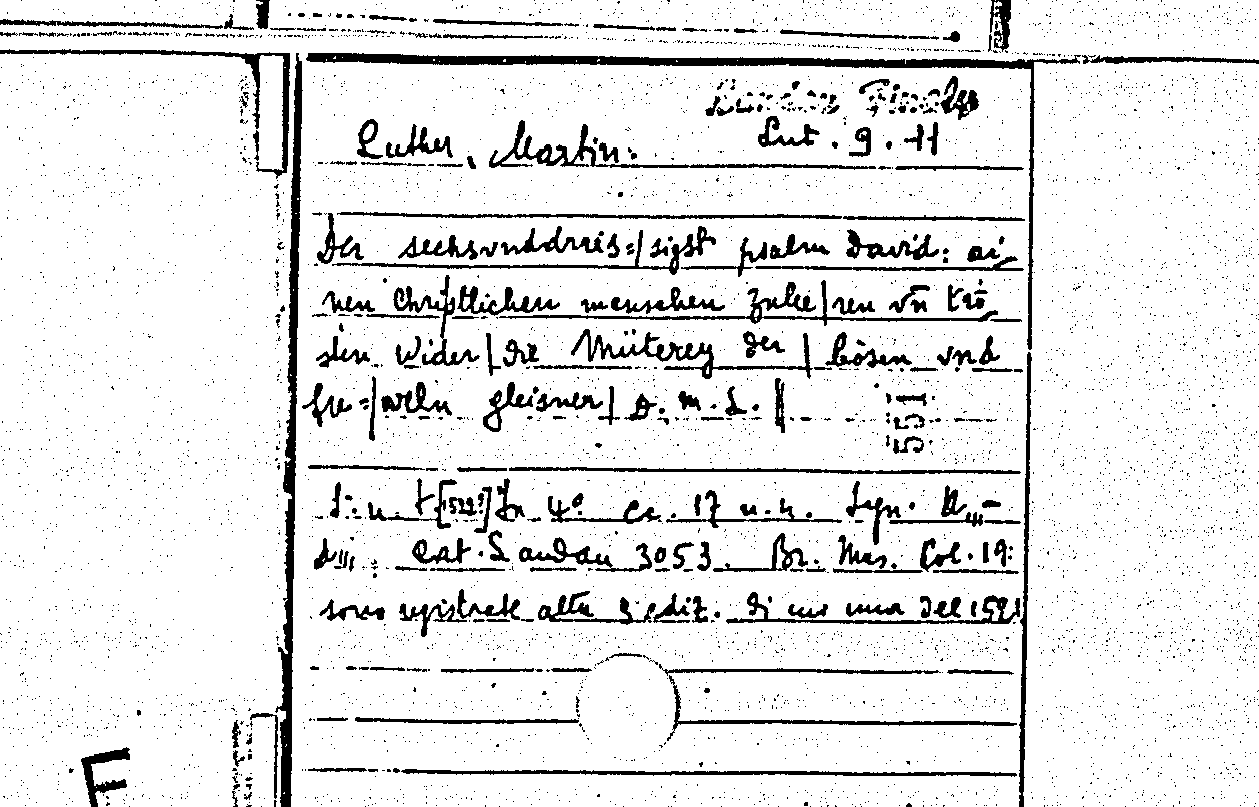 Landau Finaly
Lut. 9. 11
Luther, Martin:
Der sechsvnddreis=|sigst psalm David: ai-
nen Christlichen menschen zule|ren vn̄ trö-
sten wider|die Müterey der|bösen vnd
fre=|veln gleisner| D. M. L. ||
551
S. n. t. [1521?] In 4° cc. 17 n. n. Sgn. A
Cat. Landau 3053. Br. Mus. Col. 19:
sono registrate altre 3 ediz. di cui una del 1521
E